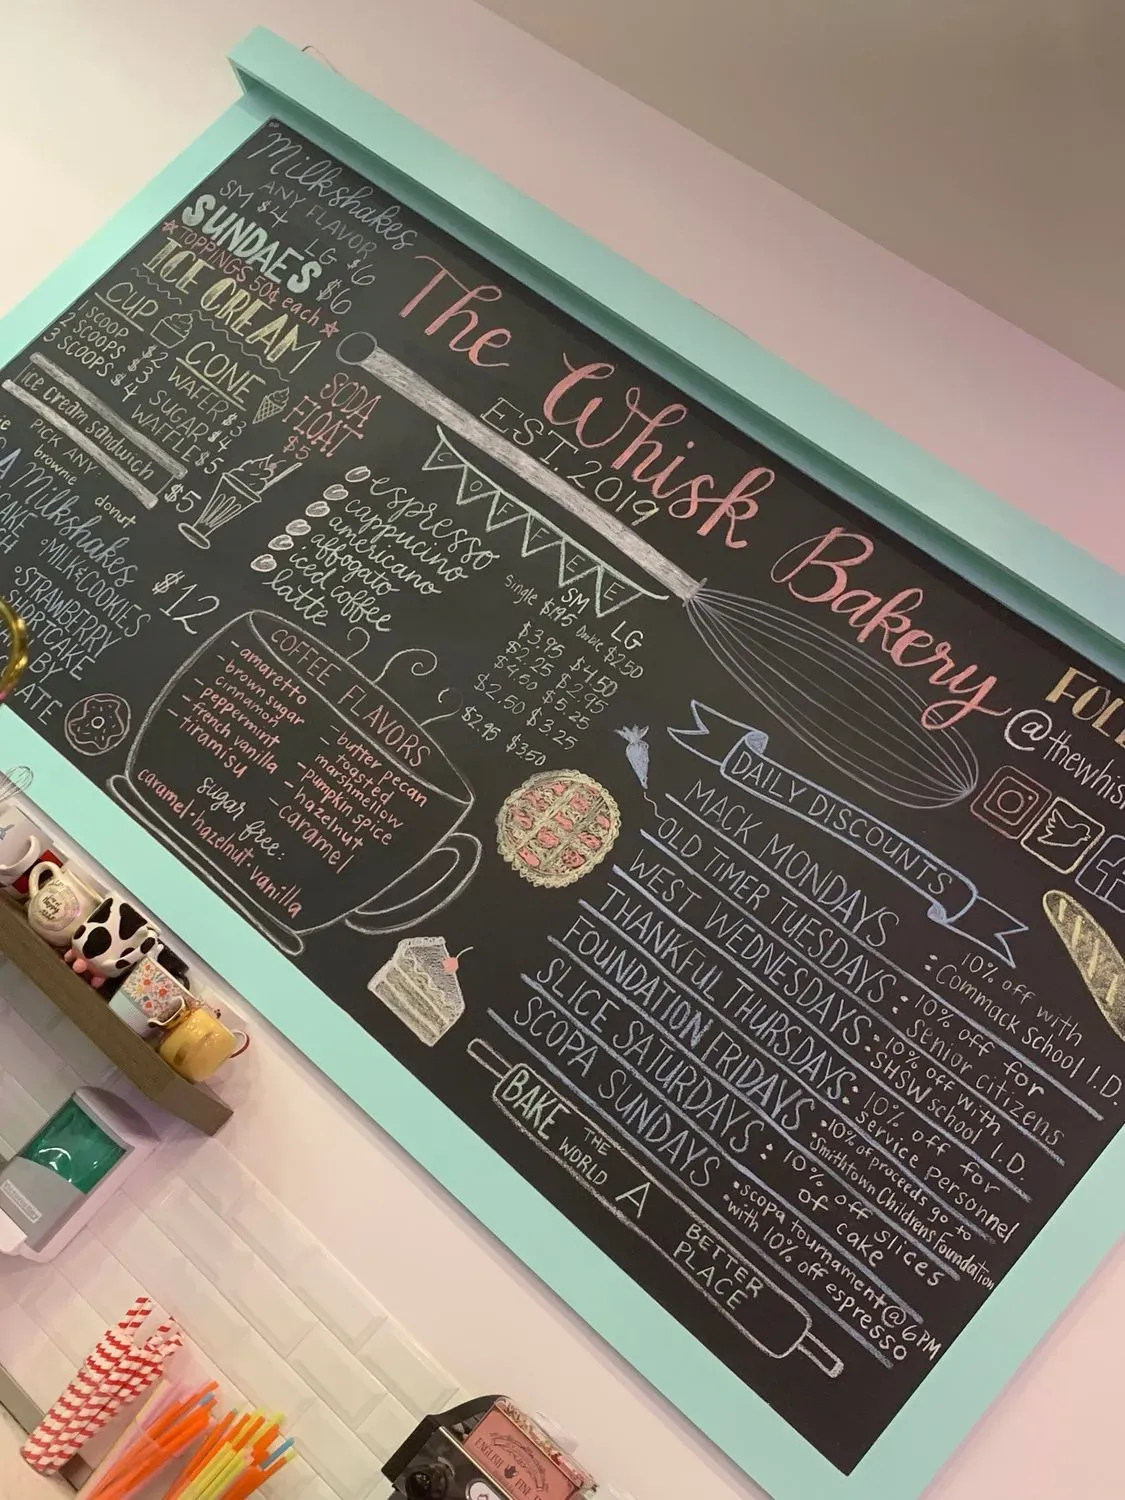 Milkshakes
ANY FLAVOR
SM $4 LG $6
SUNDAES $6
TOPPINGS 50¢ each
ICE CREAM
CUP
1 SCOOP $2
2 SCOOPS $3
3 SCOOPS $4
CONE
WAFER $3
SUGAR $4
WAFFLE $5
ice cream sandwich
PICK ANY
brownie donut
$5
SODA
FLOAT
$5
Milkshakes
MILK & COOKIES
STRAWBERRY
SHORTCAKE
BY
$12
The Whisk Bakery
EST. 2019
COFFEE
SM LG
espresso Single $1.95 Double $2.50
cappucino $3.95 $4.50
americano $2.25 $2.75
affogato $4.50 $5.25
iced coffee $2.50 $3.25
latte $2.95 $3.50
COFFEE FLAVORS
- amaretto
- brown sugar cinnamon
- peppermint
- french vanilla
- tiramisu
- butter pecan
- toasted marshmellow
- pumpkin spice
- hazelnut
- caramel
sugar free:
caramel · hazelnut · vanilla
@thewhis
DAILY DISCOUNTS
MACK MONDAYS : 10% off with Commack School I.D.
OLD TIMER TUESDAYS : 10% off for senior citizens
WEST WEDNESDAYS : 10% off with SHSW school I.D.
THANKFUL THURSDAYS : 10% off for service personnel
FOUNDATION FRIDAYS · 10% of proceeds go to Smithtown Childrens Foundation
SLICE SATURDAYS : 10% off slices of cake
SCOPA SUNDAYS · scopa tournament @ 6PM · with 10% off espresso
BAKE THE WORLD A BETTER PLACE
ENGLISH